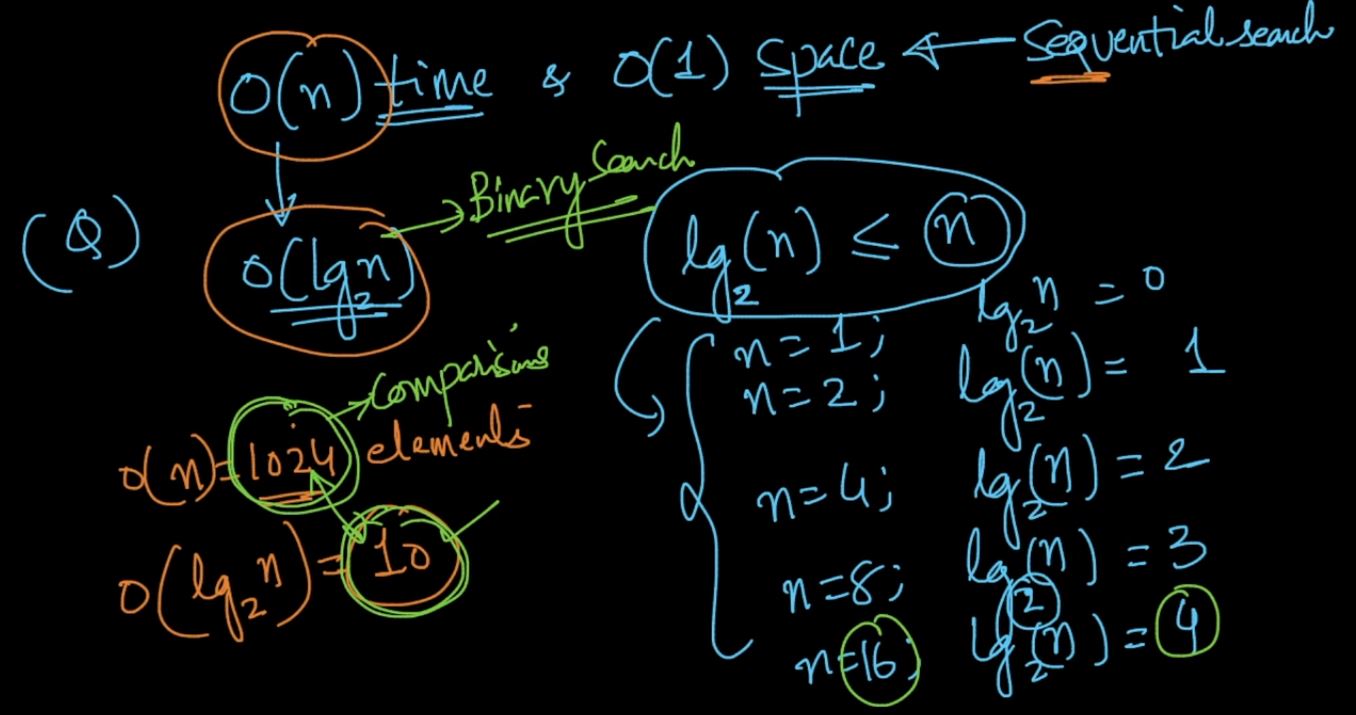 O(n) time & O(1) space ← Sequential search
(Q)
O(lg₂n) → Binary Search
lg₂(n) ≤ n
n=1; lg₂n = 0
n=2; log₂(n) = 1
n=4; log₂(n) = 2
n=8; log₂(n) = 3
n=16; log₂(n) = 4
→ Comparisons
O(n)=1024 elements
O(lg₂n)=10